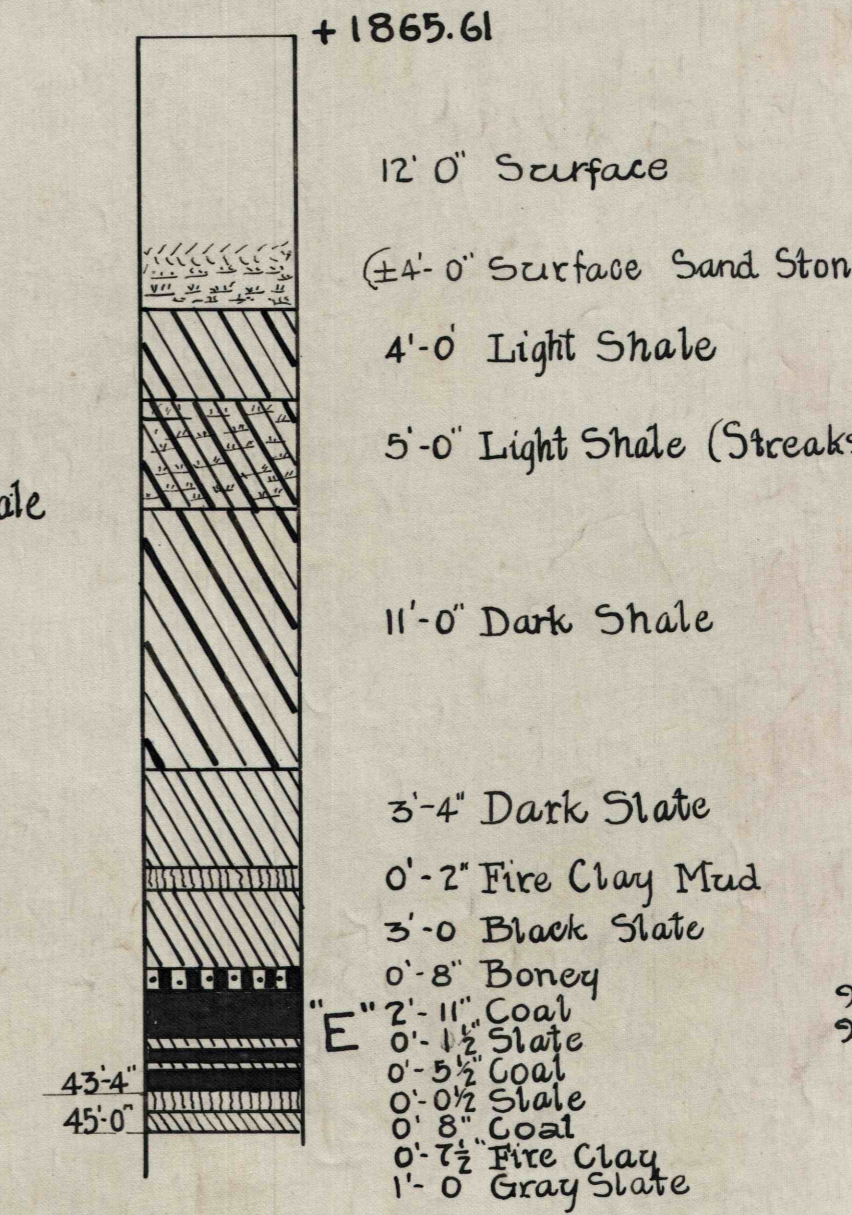 +1865.61
12' 0" Surface
(±4'-0" Surface Sand Ston
4'-0' Light Shale
5'-0" Light Shale (Streaks
ale
11'-0" Dark Shale
3'-4" Dark Slate
0'-2" Fire Clay Mud
3'-0 Black Slate
0'-8" Boney
"E" 2'-11" Coal
0'-1½" Slate
0'-5½" Coal
43'-4" 0'-0½ Slate
45'-0" 0' 8" Coal
0'-7½" Fire Clay
1'-0 Gray Slate